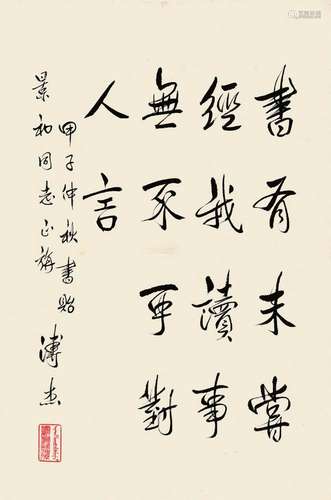 書有未嘗
經我讀事
無不可對
人言
甲子仲秋書貽
景和同志正旃
溥杰